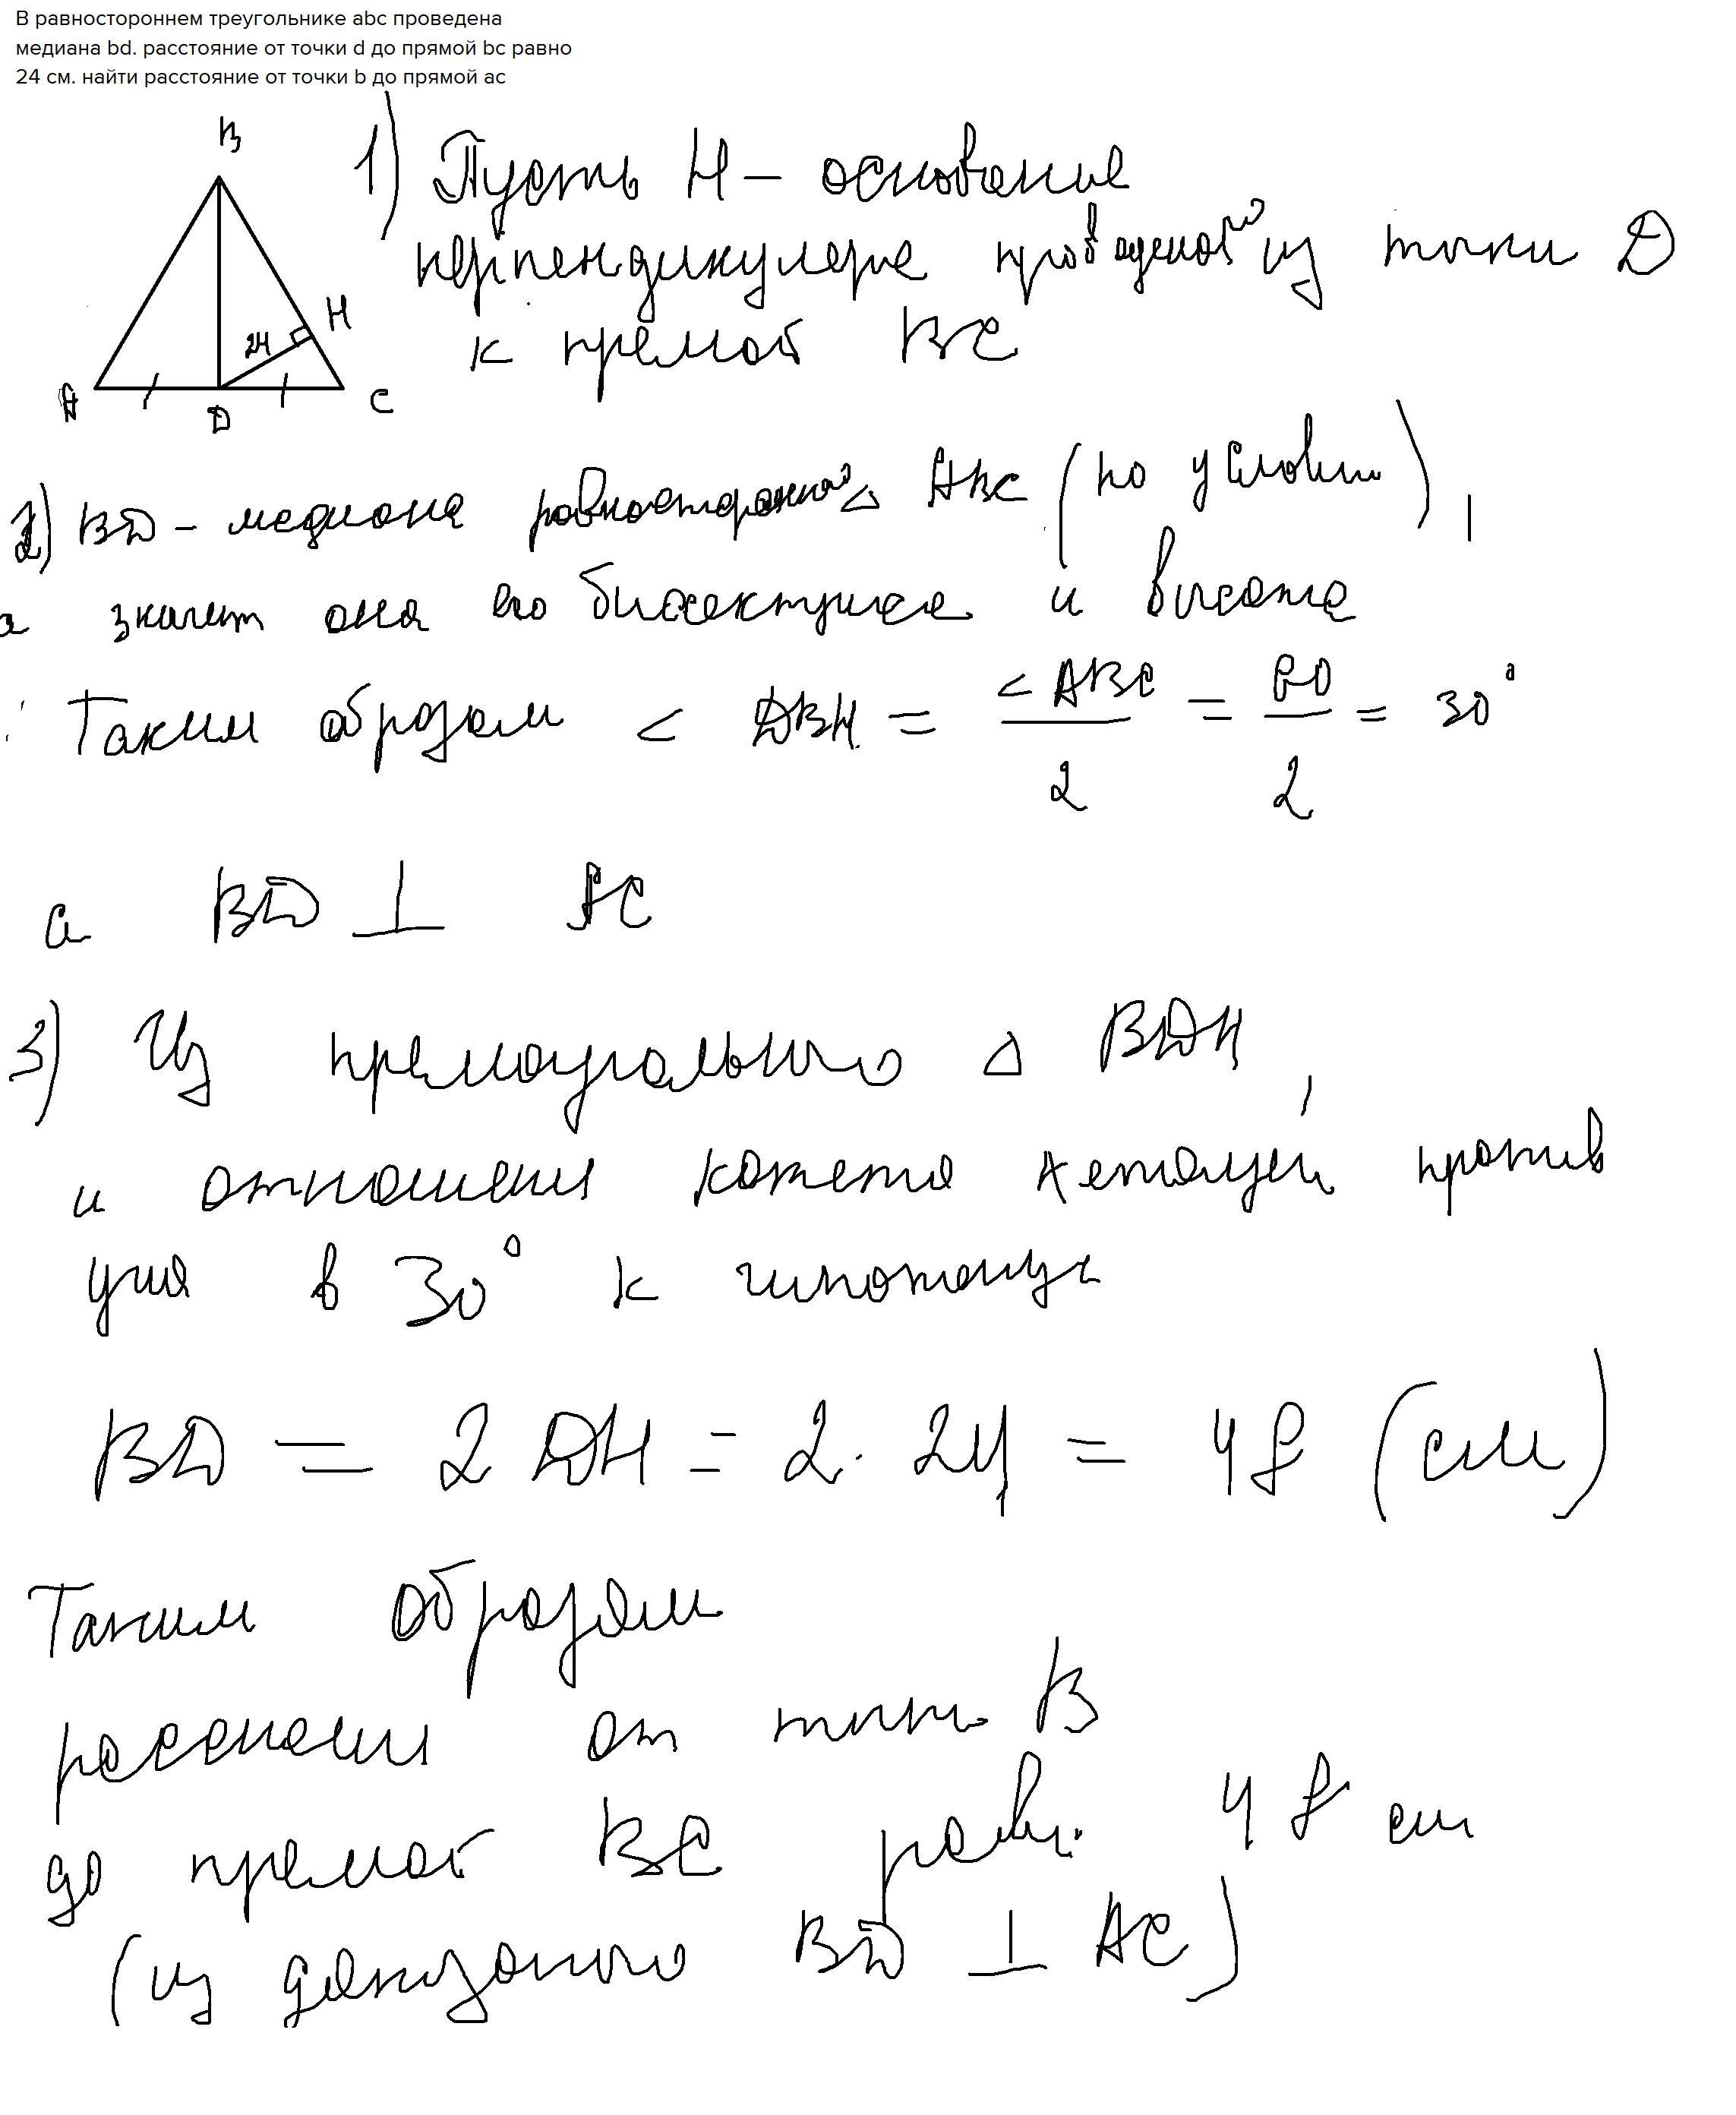 В равностороннем треугольнике abc проведена
медиана bd. расстояние от точки d до прямой bc равно
24 см. найти расстояние от точки b до прямой ac
B
1) Пусть H – основание
перпендикуляра проведеной из точки D
H
24
к прямой BC
A
D
C
2) BD – медиана равностороннего △ ABC (по условию),
а значит она его биссектриса и высота
Таким образом < DBH = < ABC / 2 = 60 / 2 = 30°
а BD ⊥ AC
3) Из прямоугольного △ BDH,
и отношения катета лежащей против
угла в 30° к гипотенузе
BD = 2 DH = 2 · 24 = 48 (см)
Таким образом
расстояние от точки B
до прямой BC равно 48 см
(из доказаного BD ⊥ AC)